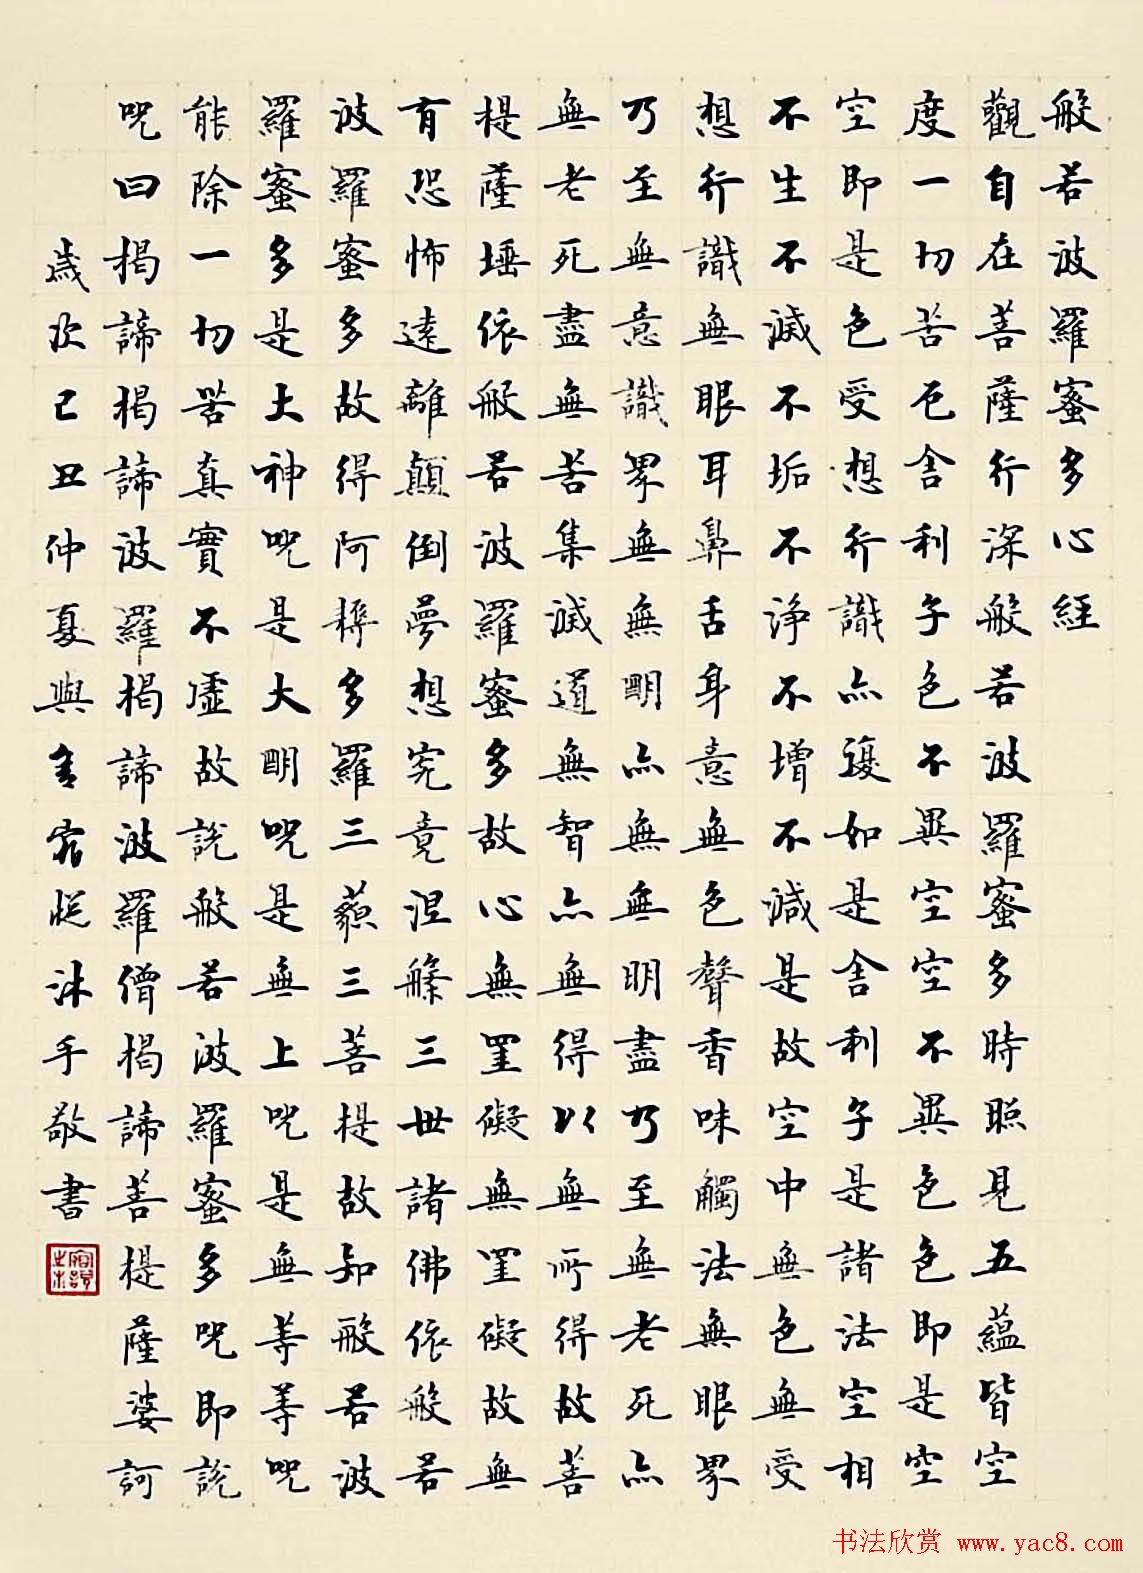 般若波羅蜜多心經
觀自在菩薩行深般若波羅蜜多時照見五蘊皆空
度一切苦厄舍利子色不異空空不異色色即是空
空即是色受想行識亦復如是舍利子是諸法空相
不生不滅不垢不淨不增不減是故空中無色無受
想行識無眼耳鼻舌身意無色聲香味觸法無眼界
乃至無意識界無無明亦無無明盡乃至無老死亦
無老死盡無苦集滅道無智亦無得以無所得故菩
提薩埵依般若波羅蜜多故心無罣礙無罣礙故無
有恐怖遠離顛倒夢想究竟涅槃三世諸佛依般若
波羅蜜多故得阿耨多羅三藐三菩提故知般若波
羅蜜多是大神咒是大明咒是無上咒是無等等咒
能除一切苦真實不虛故說般若波羅蜜多咒即說
咒曰揭諦揭諦波羅揭諦波羅僧揭諦菩提薩婆訶
歲次己丑仲夏與沐手敬書
书法欣赏 www.yac8.com